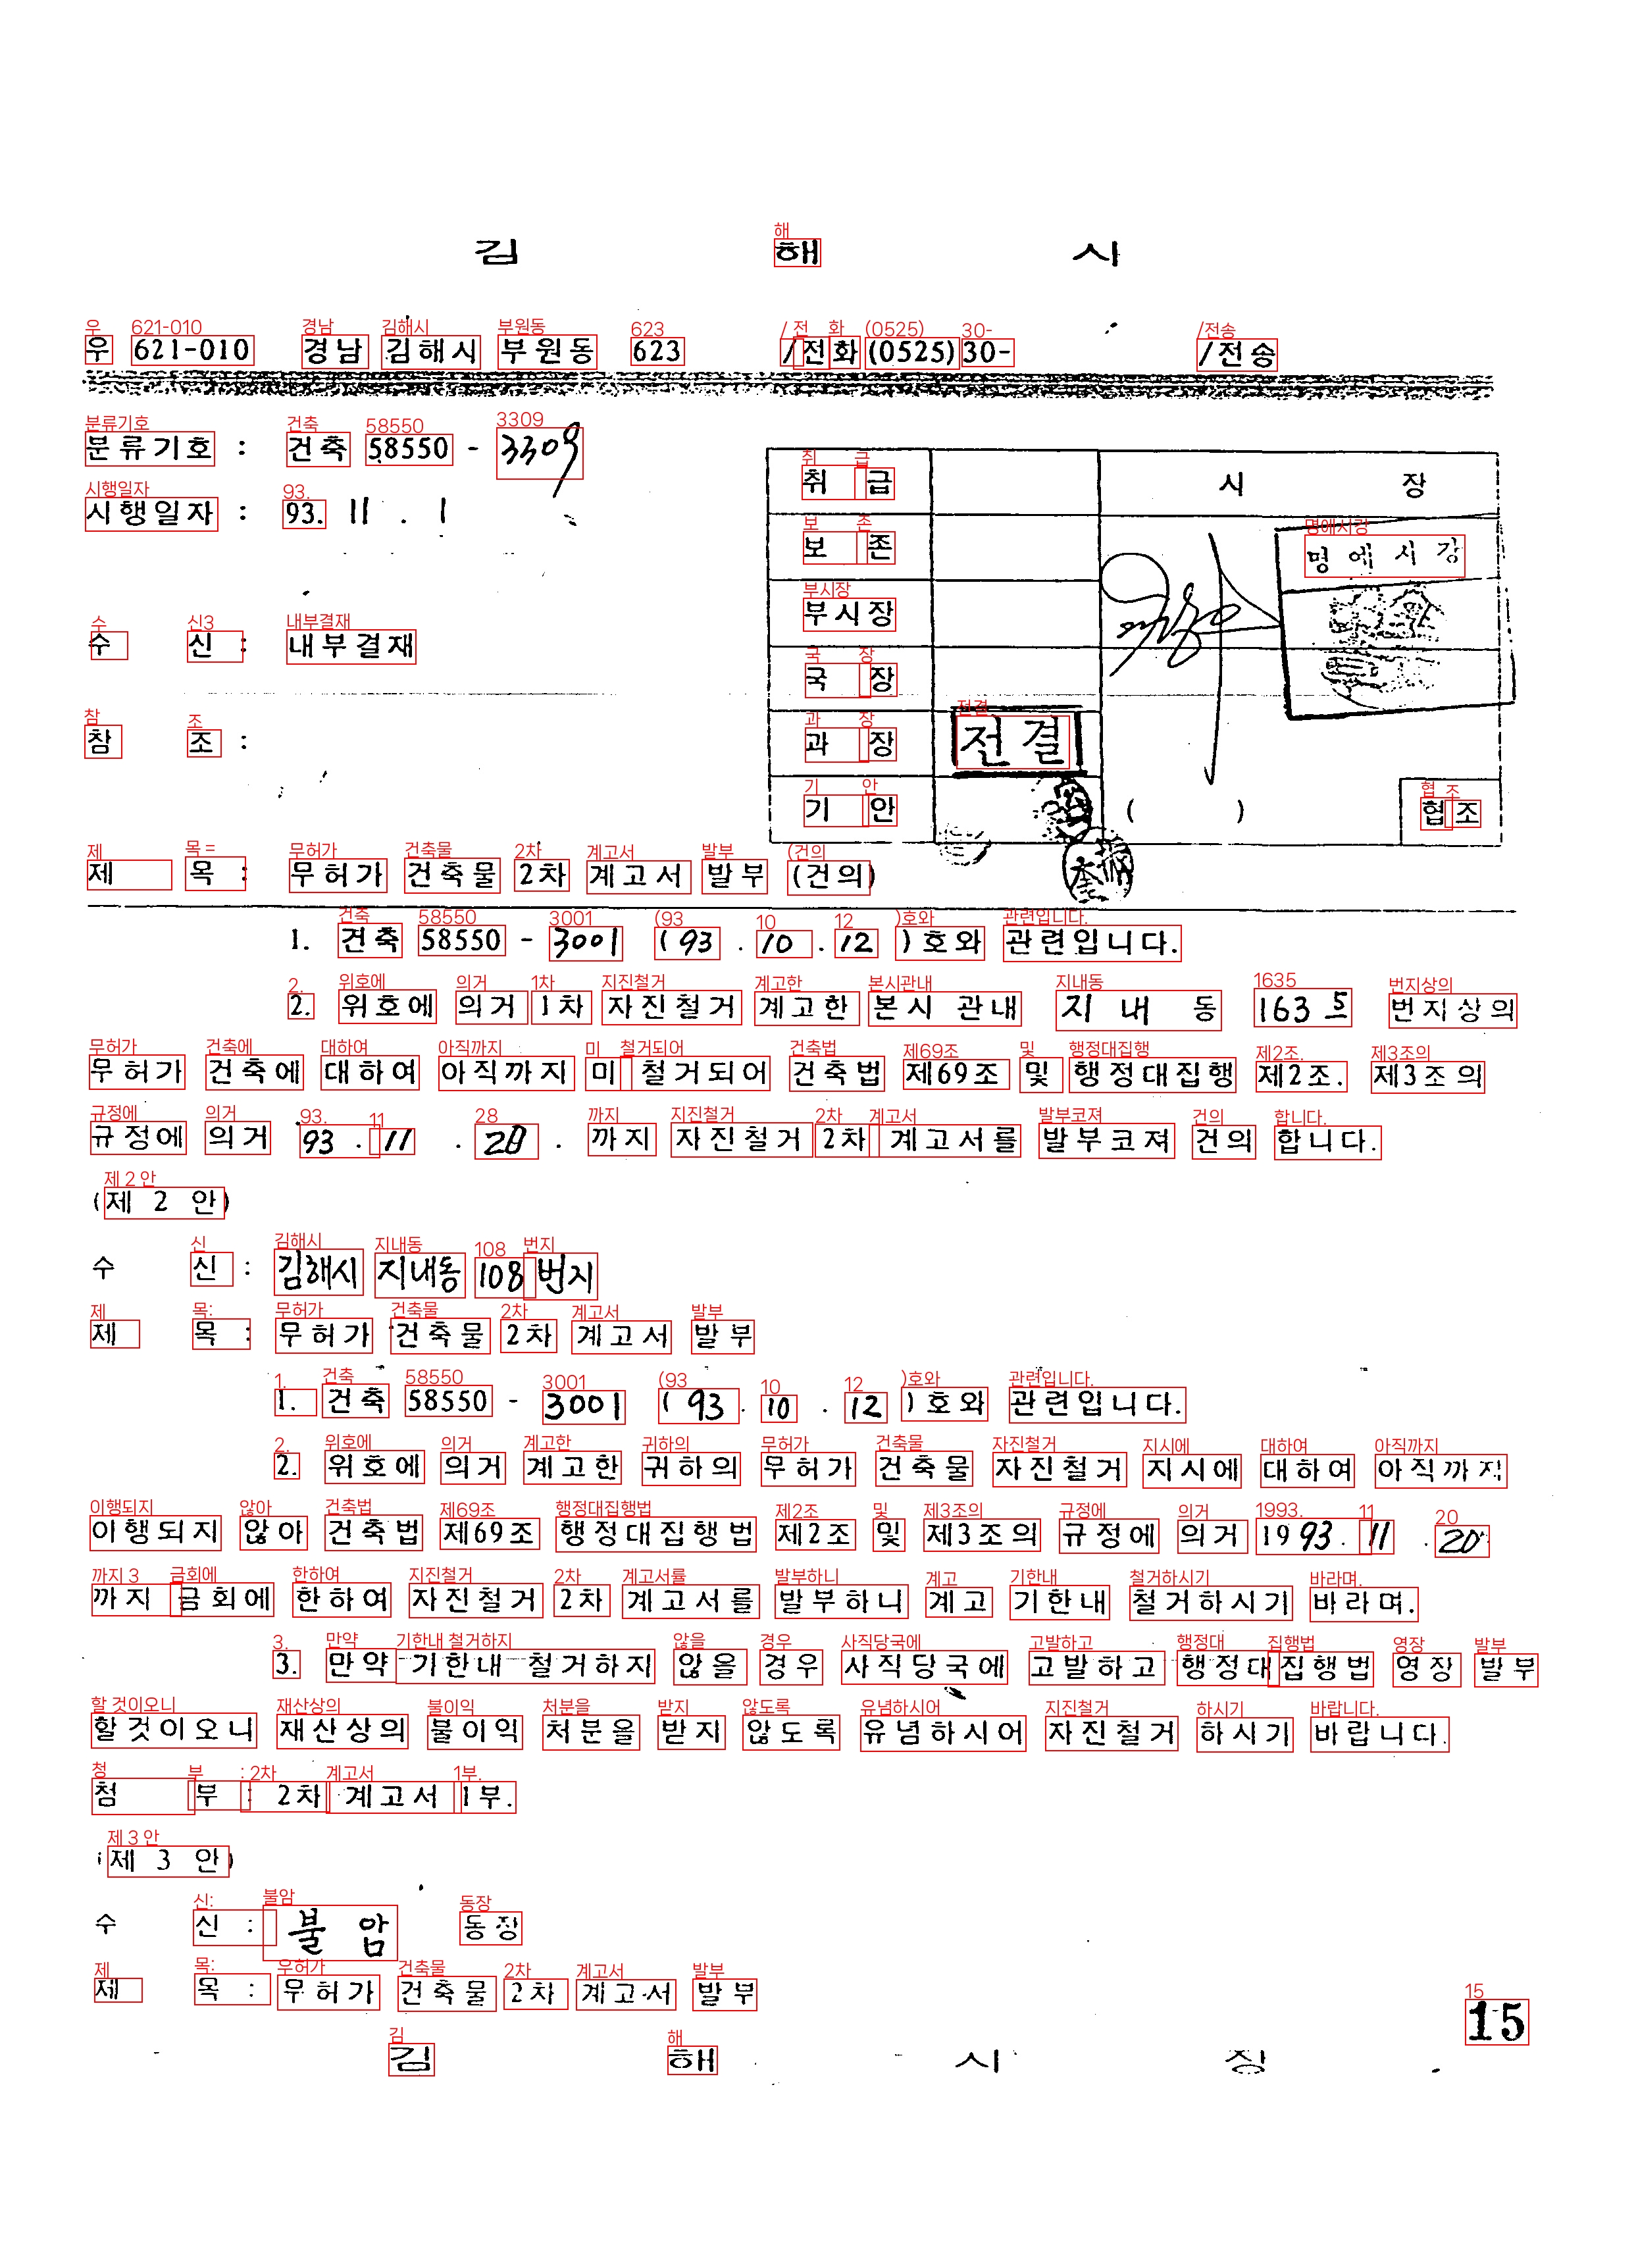 김 해 시
우 621-010 경남 김해시 부원동 623 /전화(0525)30- /전송
분류기호 : 건축 58550 - 3309
시행일자 : 93. 11 . 1
수 신 : 내부결재
참 조 :
취 급 시 장
보 존 명예시장
부시장
국 장
과 장 전결
기 안 ( ) 협조
제 목 : 무허가 건축물 2차 계고서 발부 (건의)
1. 건축 58550 - 3001 ( 93 . 10 . 12 ) 호와 관련입니다.
2. 위호에 의거 1차 자진철거 계고한 본시 관내 지내 동 1635 번지상의
무허가 건축에 대하여 아직까지 미 철거되어 건축법 제69조 및 행정대집행 제2조. 제3조의
규정에 의거 93 . 11 . 20 . 까지 자진철거 2차 계고서를 발부코져 건의 합니다.
(제 2 안)
수 신 : 김해시 지내동 108 번지
제 목 : 무허가 건축물 2차 계고서 발부
1. 건축 58550 - 3001 ( 93 . 10 . 12 ) 호와 관련입니다.
2. 위호에 의거 계고한 귀하의 무허가 건축물 자진철거 지시에 대하여 아직까지
이행되지 않아 건축법 제69조 행정대집행법 제2조 및 제3조의 규정에 의거 1993 . 11 . 20
까지 금회에 한하여 자진철거 2차 계고서를 발부하니 계고 기한내 철거하시기 바라며.
3. 만약 기한내 철거하지 않을 경우 사직당국에 고발하고 행정대집행법 영장 발부
할것이오니 재산상의 불이익 처분을 받지 않도록 유념하시어 자진철거 하시기 바랍니다.
첨 부 : 2차 계고서 1부.
(제 3 안)
수 신 : 불암 동장
제 목 : 무허가 건축물 2차 계고서 발부
15
김 해 시 장